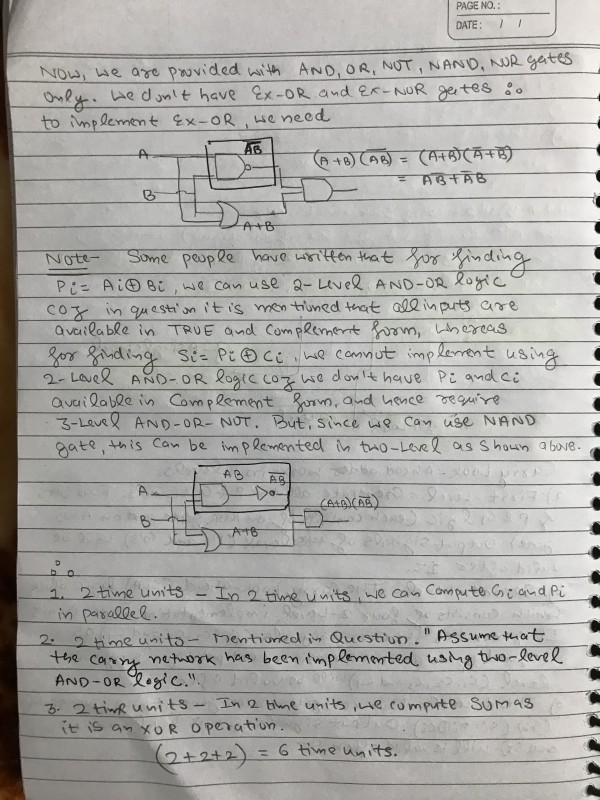 PAGE NO.:
DATE: / /
NOW, we are provided with AND, OR, NOT, NAND, NOR gates
only. We don't have Ex-OR and Ex-NOR gates ∴
to implement Ex-OR, we need
A
B
A̅B̅
A+B
(A+B)(A̅B̅) = (A+B)(A̅+B̅)
= AB̅+A̅B
Note- Some people have written that for finding
Pi= Ai⊕Bi, we can use 2-Level AND-OR logic
coz in question it is mentioned that all inputs are
available in TRUE and complement form, whereas
for finding Si= Pi⊕Ci, we cannot implement using
2-Level AND-OR logic coz we don't have Pi and Ci
available in Complement form, and hence require
3-Level AND-OR-NOT. But, since we can use NAND
gate, this can be implemented in two-Level as shown above.
A
B
AB
A̅B̅
A+B
(A+B)(A̅B̅)
∴
1. 2 time units - In 2 time units, we can compute Gi and Pi
in parallel.
2. 2 time units - Mentioned in Question. "Assume that
the carry network has been implemented using two-level
AND-OR logic.".
3. 2 time units - In 2 time units, we compute SUM as
it is an XOR operation.
(2+2+2) = 6 time units.